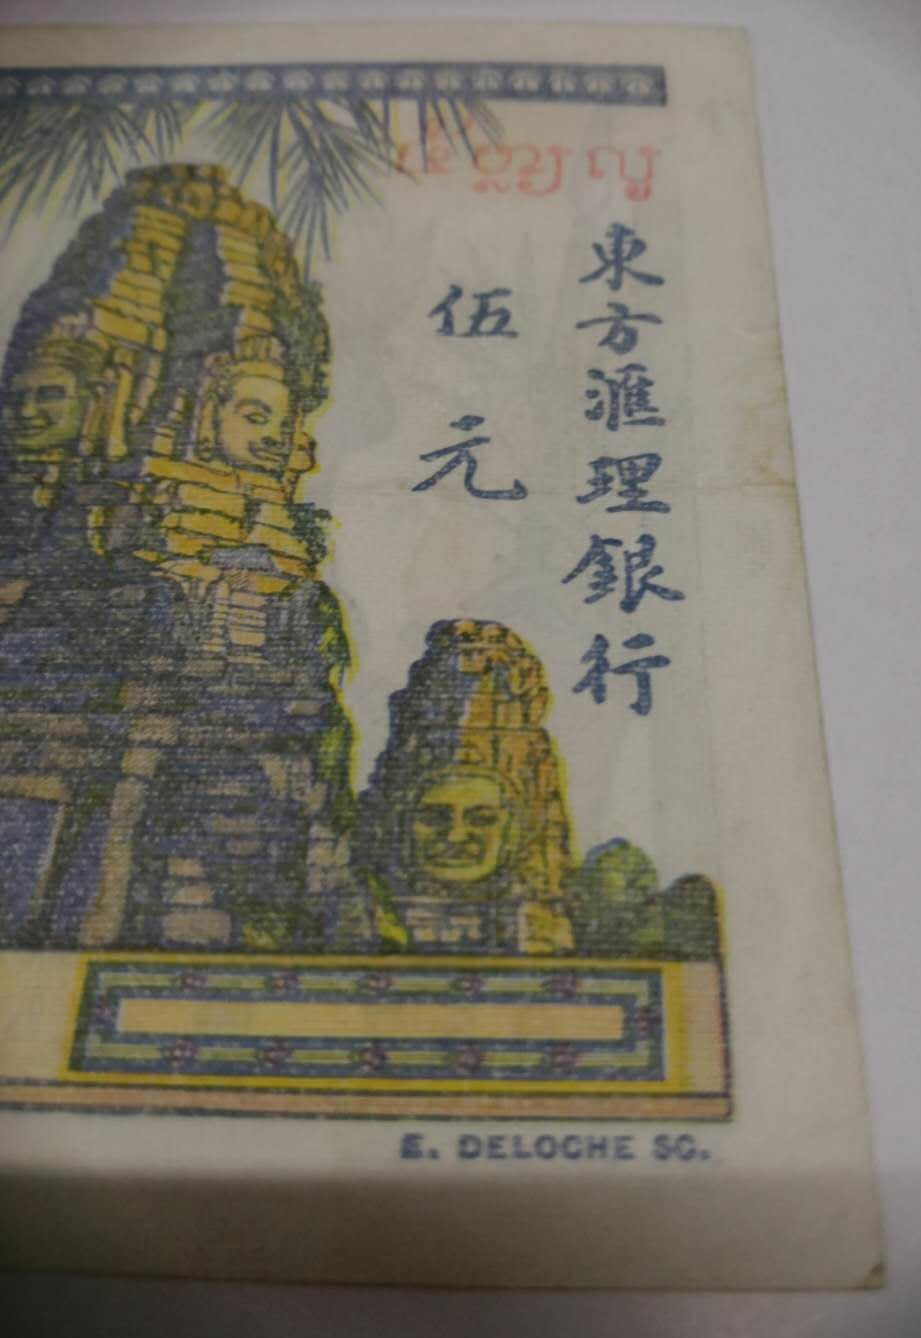 東方滙理銀行
伍元
E. DELOCHE SC.